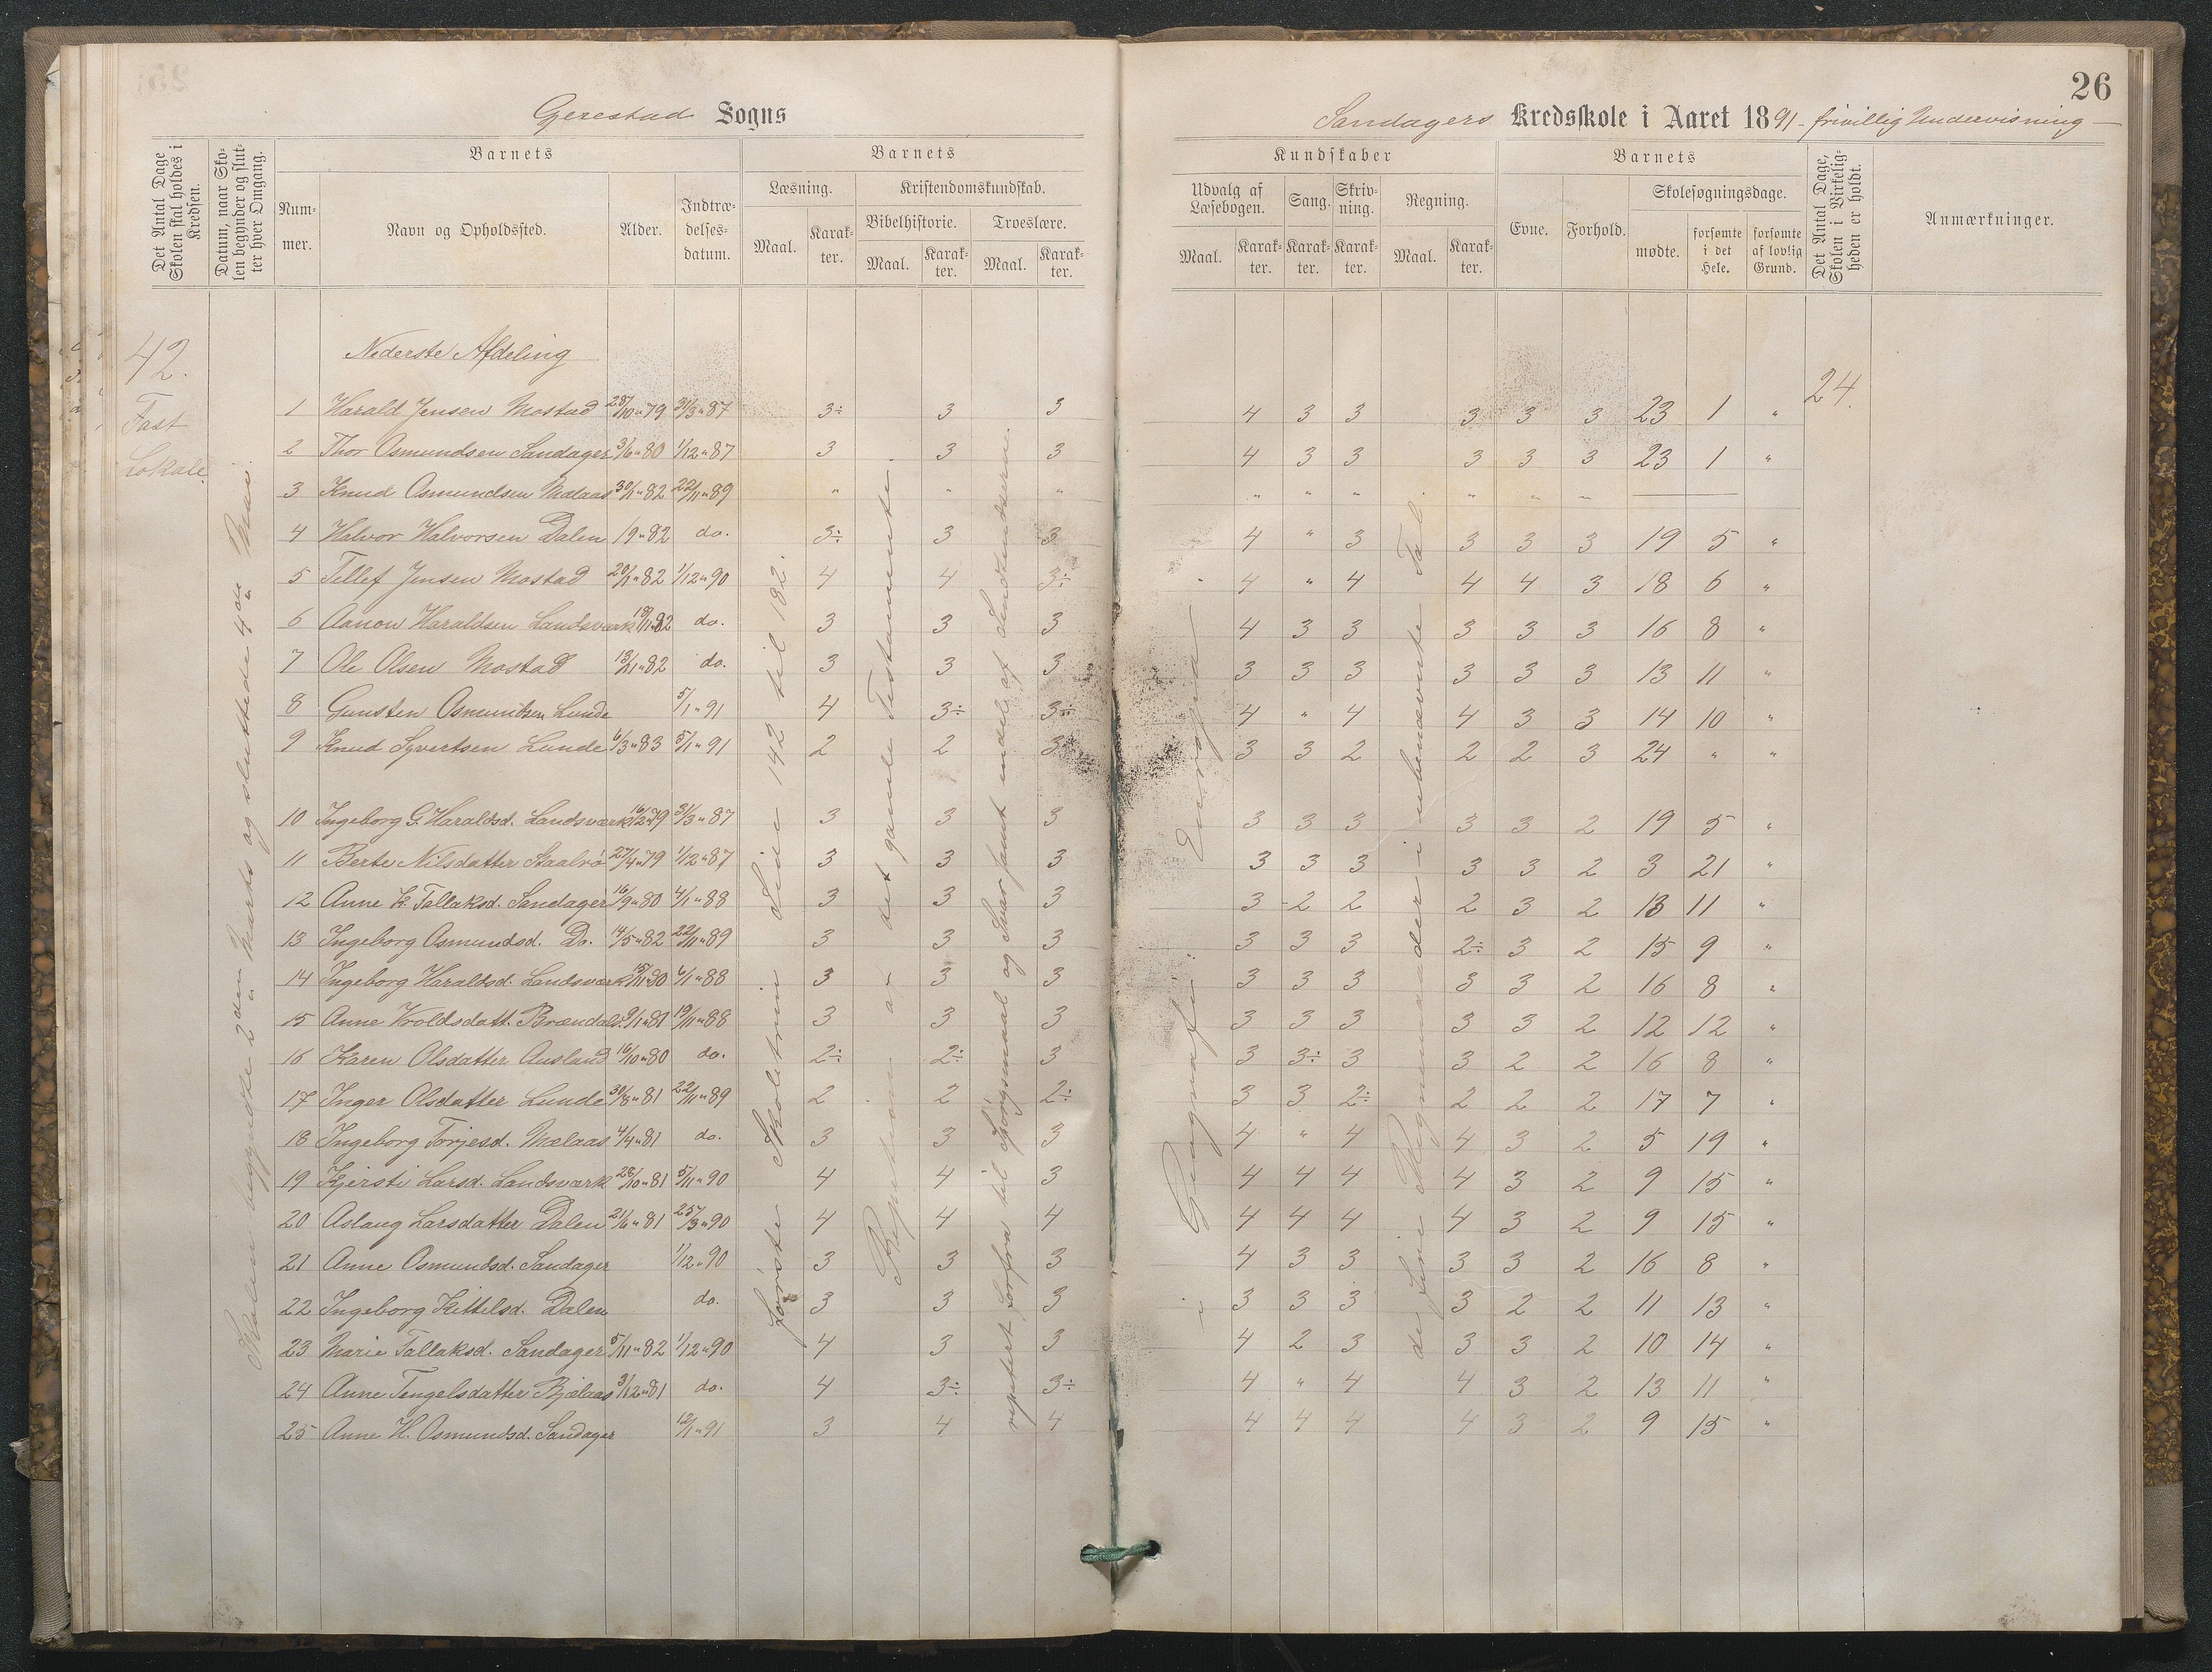 26
Gjerestad Sogns
Sandagers Kredsskole i Aaret 1891 - frivillig Undervisning -
Det Antal Dage Skolen skal holdes i Kredsen.
Datum, naar Skolen begynder og slutter hver Omgang.
Nummer.
Barnets
Navn og Opholdssted.
Alder.
Indtrædelsesdatum.
Barnets
Læsning.
Maal.
Karakter.
Kristendomskundskab.
Bibelhistorie.
Maal.
Karakter.
Troeslære.
Maal.
Karakter.
Kundskaber
Udvalg af Læsebogen.
Maal.
Karakter.
Sang.
Karakter.
Skrivning.
Karakter.
Regning.
Maal.
Karakter.
Barnets
Evne.
Forhold.
Skolesøgningsdage.
mødte.
forsømte i det Hele.
forsømte af lovlig Grund.
Det Antal Dage, Skolen i Virkeligheden er holdt.
Anmærkninger.
42.
Fast
Lokale
Skolen begyndte 2den Marts og sluttede 4de Mai.
Nederste Afdeling
24.
1 Harald Jensen Mostad 28/10 79 31/3 87 3÷ 3 3 4 3 3 3 3 3 23 1 "
2 Thor Osmundsen Sandager 3/6 80 1/12 87 3 3 3 4 3 3 3 3 3 23 1 "
3 Knud Osmundsen Mælaas 30/1 82 22/11 89 " " " " " " " " "
4 Halvor Halvorsen Dalen 19 82 do. 3÷ 3 3 4 " 3 3 3 3 19 5 "
5 Tellef Jensen Mostad 20/1 82 1/12 90 4 4 3÷ 4 " 4 4 4 3 18 6 "
6 Aanon Haraldsen Landsværk 18/11 82 do. 3 3 3 4 3 3 3 3 3 16 8 "
7 Ole Olsen Mostad 13/11 82 do. 3 3 3 3 3 3 3 3 3 13 11 "
8 Gunsten Osmundsen Lunde 5/1 91 4 3÷ 3÷ 4 " 4 4 3 3 14 10 "
9 Knud Syvertsen Lunde 6/3 83 5/1 91 2 2 3 3 3 2 2 2 3 24 " "
10 Ingeborg G. Haraldsd. Landsværk 16/12 79 31/3 87 3 3 3 3 3 3 3 3 2 19 5 "
11 Berte Nilsdatter Staalvö 27/4 79 1/12 87 3 3 3 3 3 3 3 3 2 3 21 "
12 Anne K. Tallaksd. Sandager 16/9 80 4/1 88 3 3 3 3 2 2 2 3 2 13 11 "
13 Ingeborg Osmundsd. Do. 14/5 82 22/11 89 3 3 3 3 3 3 2÷ 3 2 15 9 "
14 Ingeborg Haraldsd. Landsværk 15/11 80 6/1 88 3 3 3 3 3 3 3 3 2 16 8 "
15 Anne Vroldsdatt. Brændals. 9/1 81 19/11 88 3 3 3 3 3 3 3 3 2 12 12 "
16 Karen Olsdatter Ausland 16/10 80 do. 2÷ 2÷ 3 3 3÷ 3 3 2 2 16 8 "
17 Inger Olsdatter Lunde 30/8 81 22/11 89 2 2 2÷ 3 3 2÷ 2 2 2 17 7 "
18 Ingeborg Torjesd. Mælaas 4/4 81 do. 3 3 3 4 " 4 4 3 2 5 19 "
19 Kjersti Larsd. Landsværk 28/10 81 5/11 90 4 4 3 4 4 4 4 3 2 9 15 "
20 Aslaug Larsdatter Dalen 21/6 81 25/3 90 4 4 4 4 4 4 4 3 2 9 15 "
21 Anne Osmundsd. Sandager 1/12 90 3 3 3 4 3 3 3 3 2 16 8 "
22 Ingeborg Kittelsd. Dalen do. 3 3 3 3 3 3 3 2 2 11 13 "
23 Marie Tallaksd. Sandager 5/11 82 1/12 90 4 3 3 4 2 3 3 3 2 10 14 "
24 Anne Tengelsdatter Bjælaas 3/12 81 do. 4 3÷ 3÷ 4 " 4 4 3 2 13 11 "
25 Anne H. Osmundsd. Sandager 12/1 91 3 4 4 4 4 4 4 3 2 9 15 "
Første Skoletrin Side 142 til 182.
Repetition af det gamle Testamente.
repetert forfra til Spörgsmaal og Svar samt endel af
i Geografi
de fire Regnemaader i ubenævnte Tal